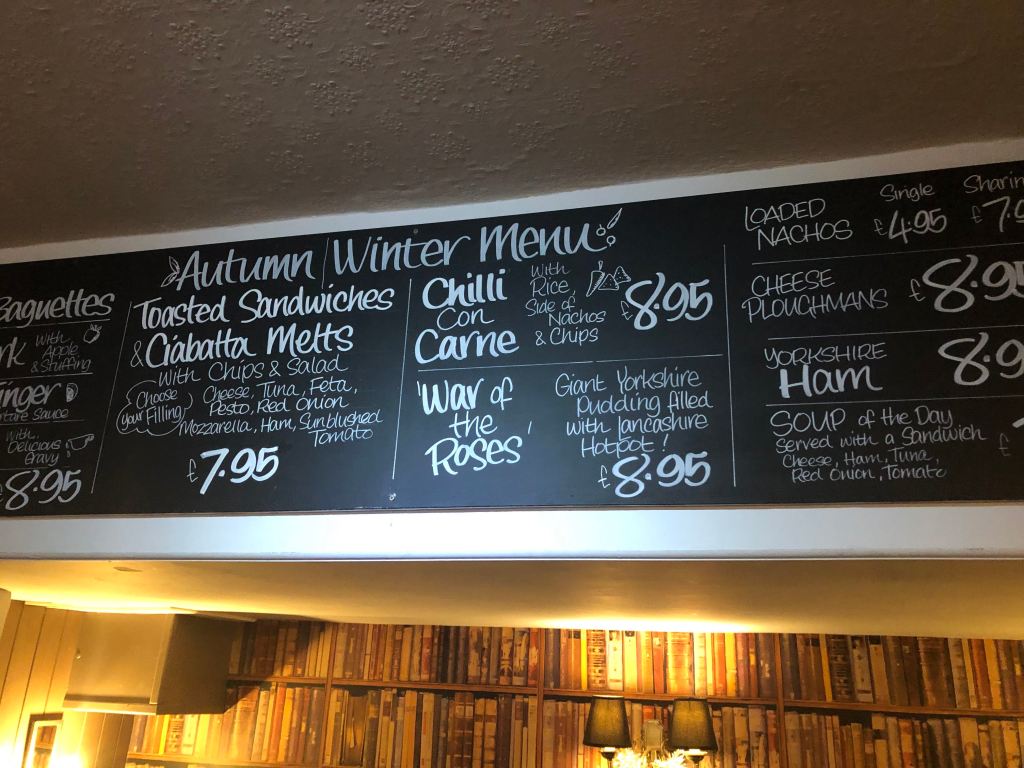 Autumn Winter Menu
Baguettes
With
Apple
& Stuffing
Tartare Sauce
With
Delicious
Gravy
£8.95
Toasted Sandwiches
& Ciabatta Melts
With Chips & Salad
Choose
your Filling
Cheese, Tuna, Feta,
Pesto, Red Onion
Mozzarella, Ham, Sunblushed
Tomato
£7.95
Chilli
Con
Carne
With
Rice,
Side of
Nachos
& Chips
£8.95
'War of
the
Roses'
Giant Yorkshire
Pudding filled
with Lancashire
Hotpot!
£8.95
Single
LOADED
NACHOS
£4.95
CHEESE
PLOUGHMANS
£8.95
YORKSHIRE
Ham
SOUP of the Day
Served with a Sandwich
Cheese, Ham, Tuna,
Red Onion, Tomato
£